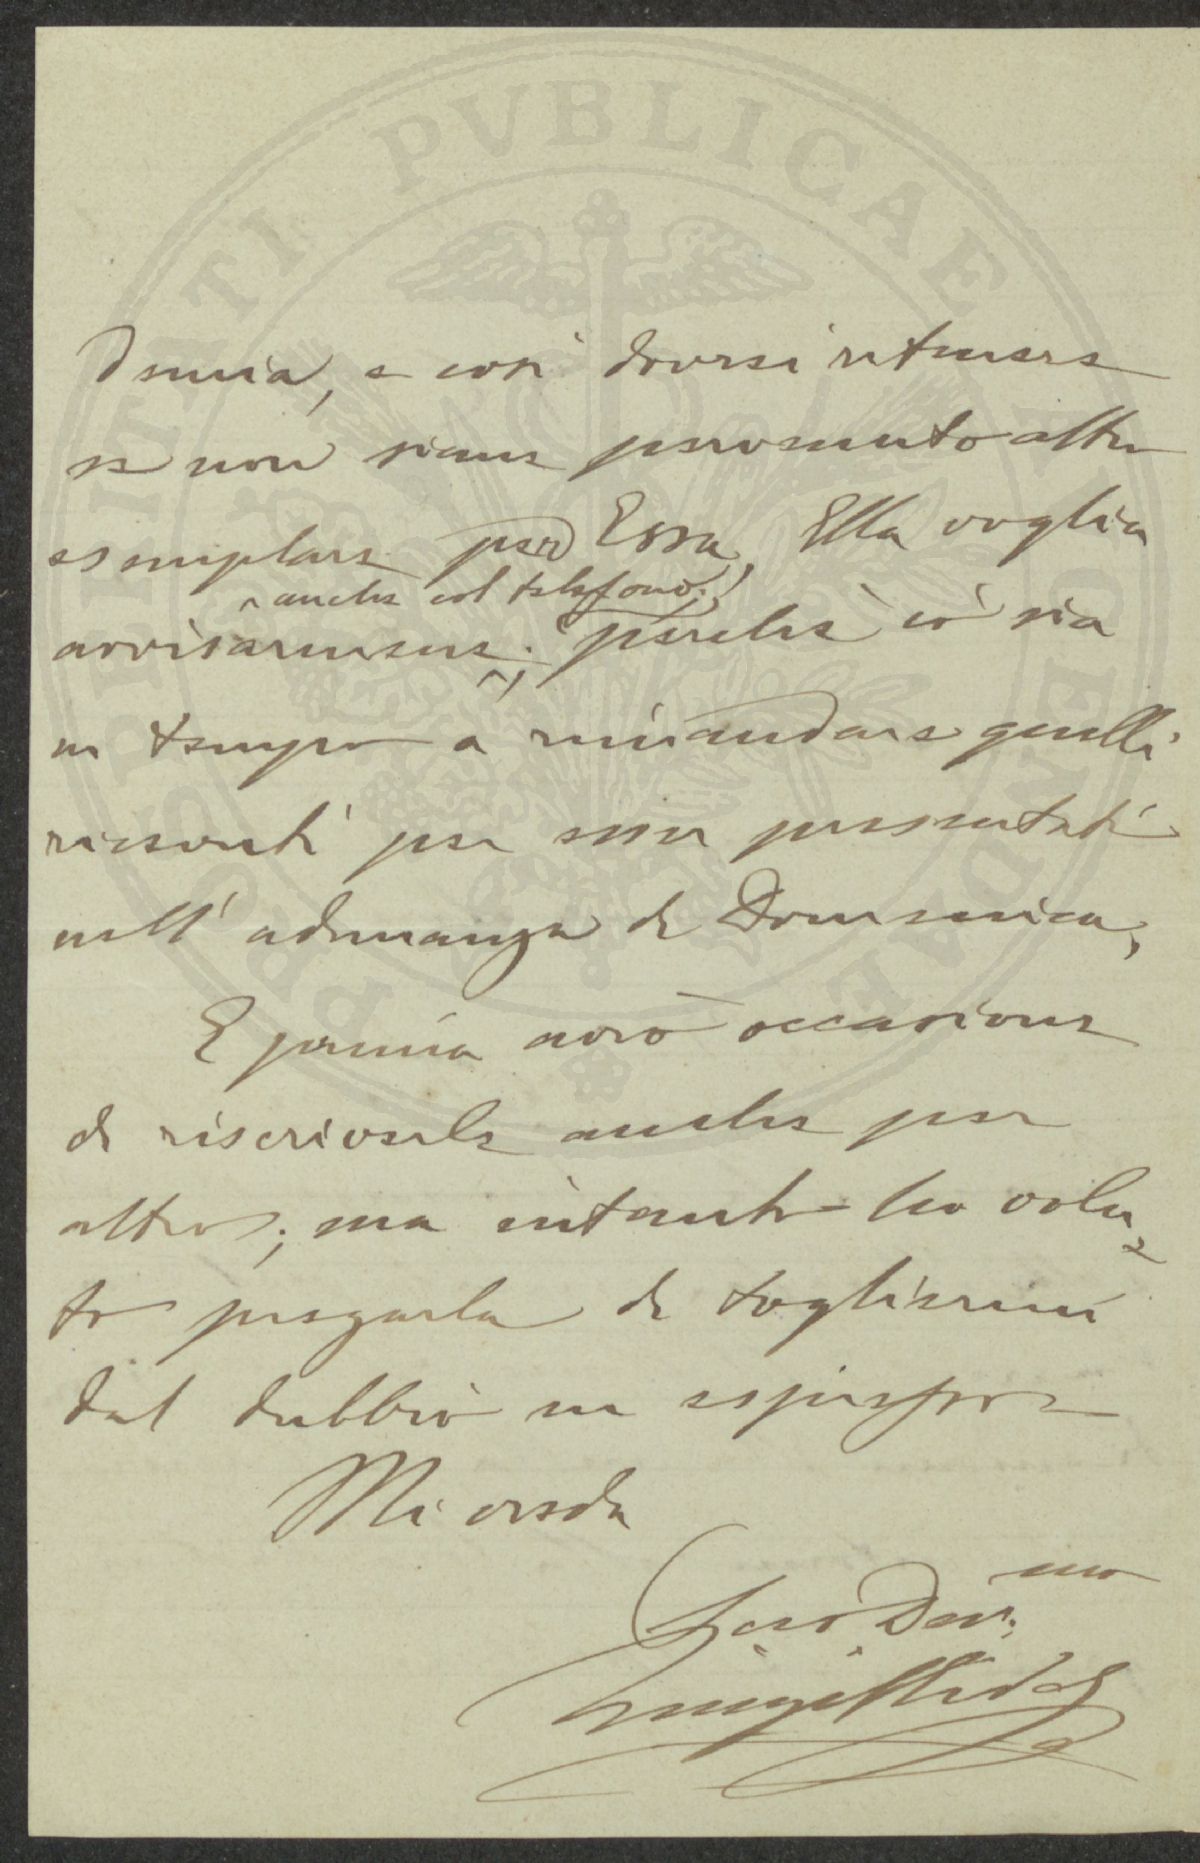 PROSPERITATI PVBLICAE AVGENDAE
demia, e così doversi ritenere
se non siane pervenuto altro
esemplare per Essa, Ella voglia
anche col telefono;
avvisarmene; perchè ciò sia
in tempo a rimandare quelli
ricevuti per esser presentati
nell' adunanza di Domenica,
E prima avrò occasione
di riscriverle anche per
altro; ma intanto ho volu
to pregarla di togliermi
dal dubbio in
Mi creda
Suo Dev.mo